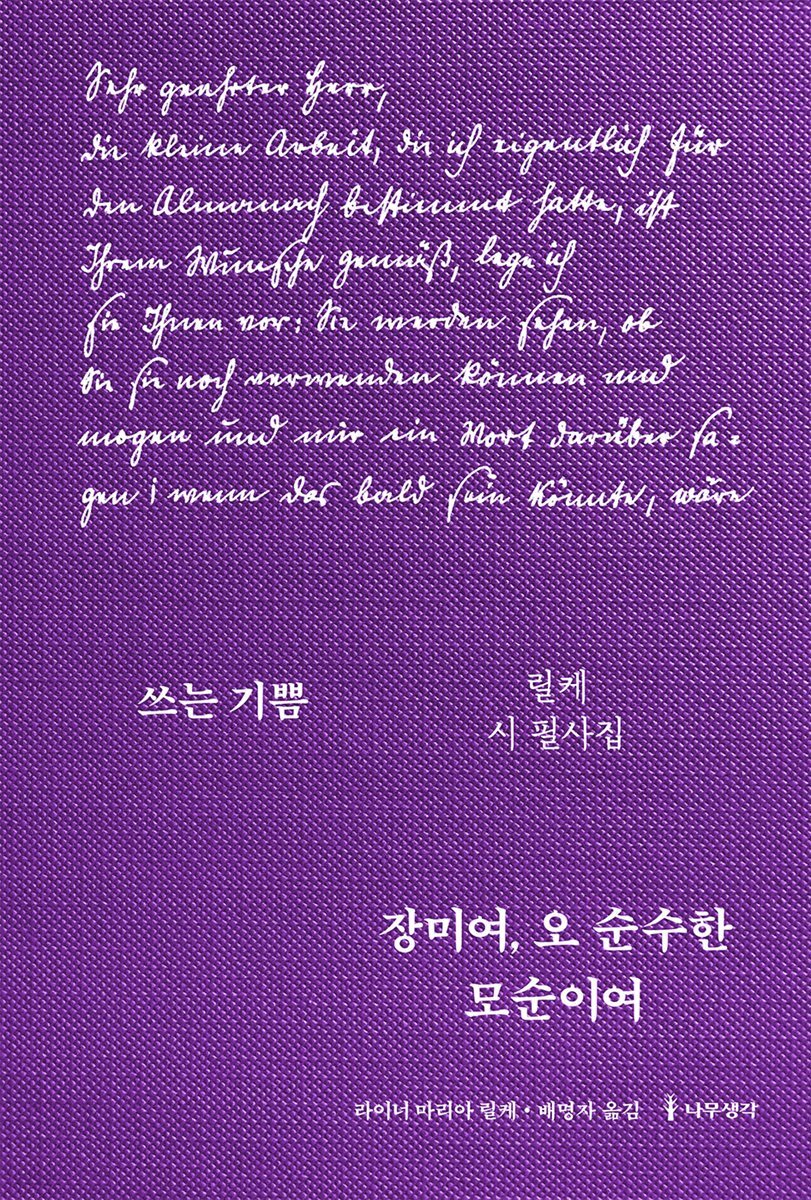 Sehr geehrter Herr,
die kleine Arbeit, die ich eigentlich für
den Almanach bestimmt hatte, ist
Ihrem Wunsche gemäß, lege ich
sie Ihnen vor: Sie werden sehen, ob
Sie sie noch verwenden können und
mogen und mir ein Wort darüber sa=
gen; wenn das bald sein könnte, wäre
쓰는 기쁨
릴케
시 필사집
장미여, 오 순수한
모순이여
라이너 마리아 릴케 • 배명자 옮김 나무생각